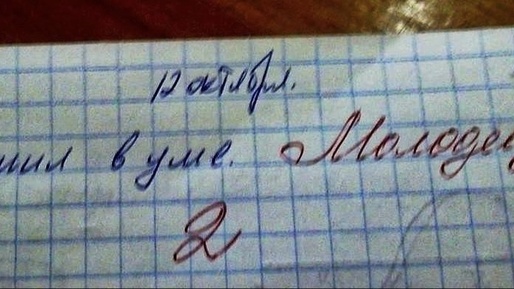 12 октября.
шил в уме. Молодец
2